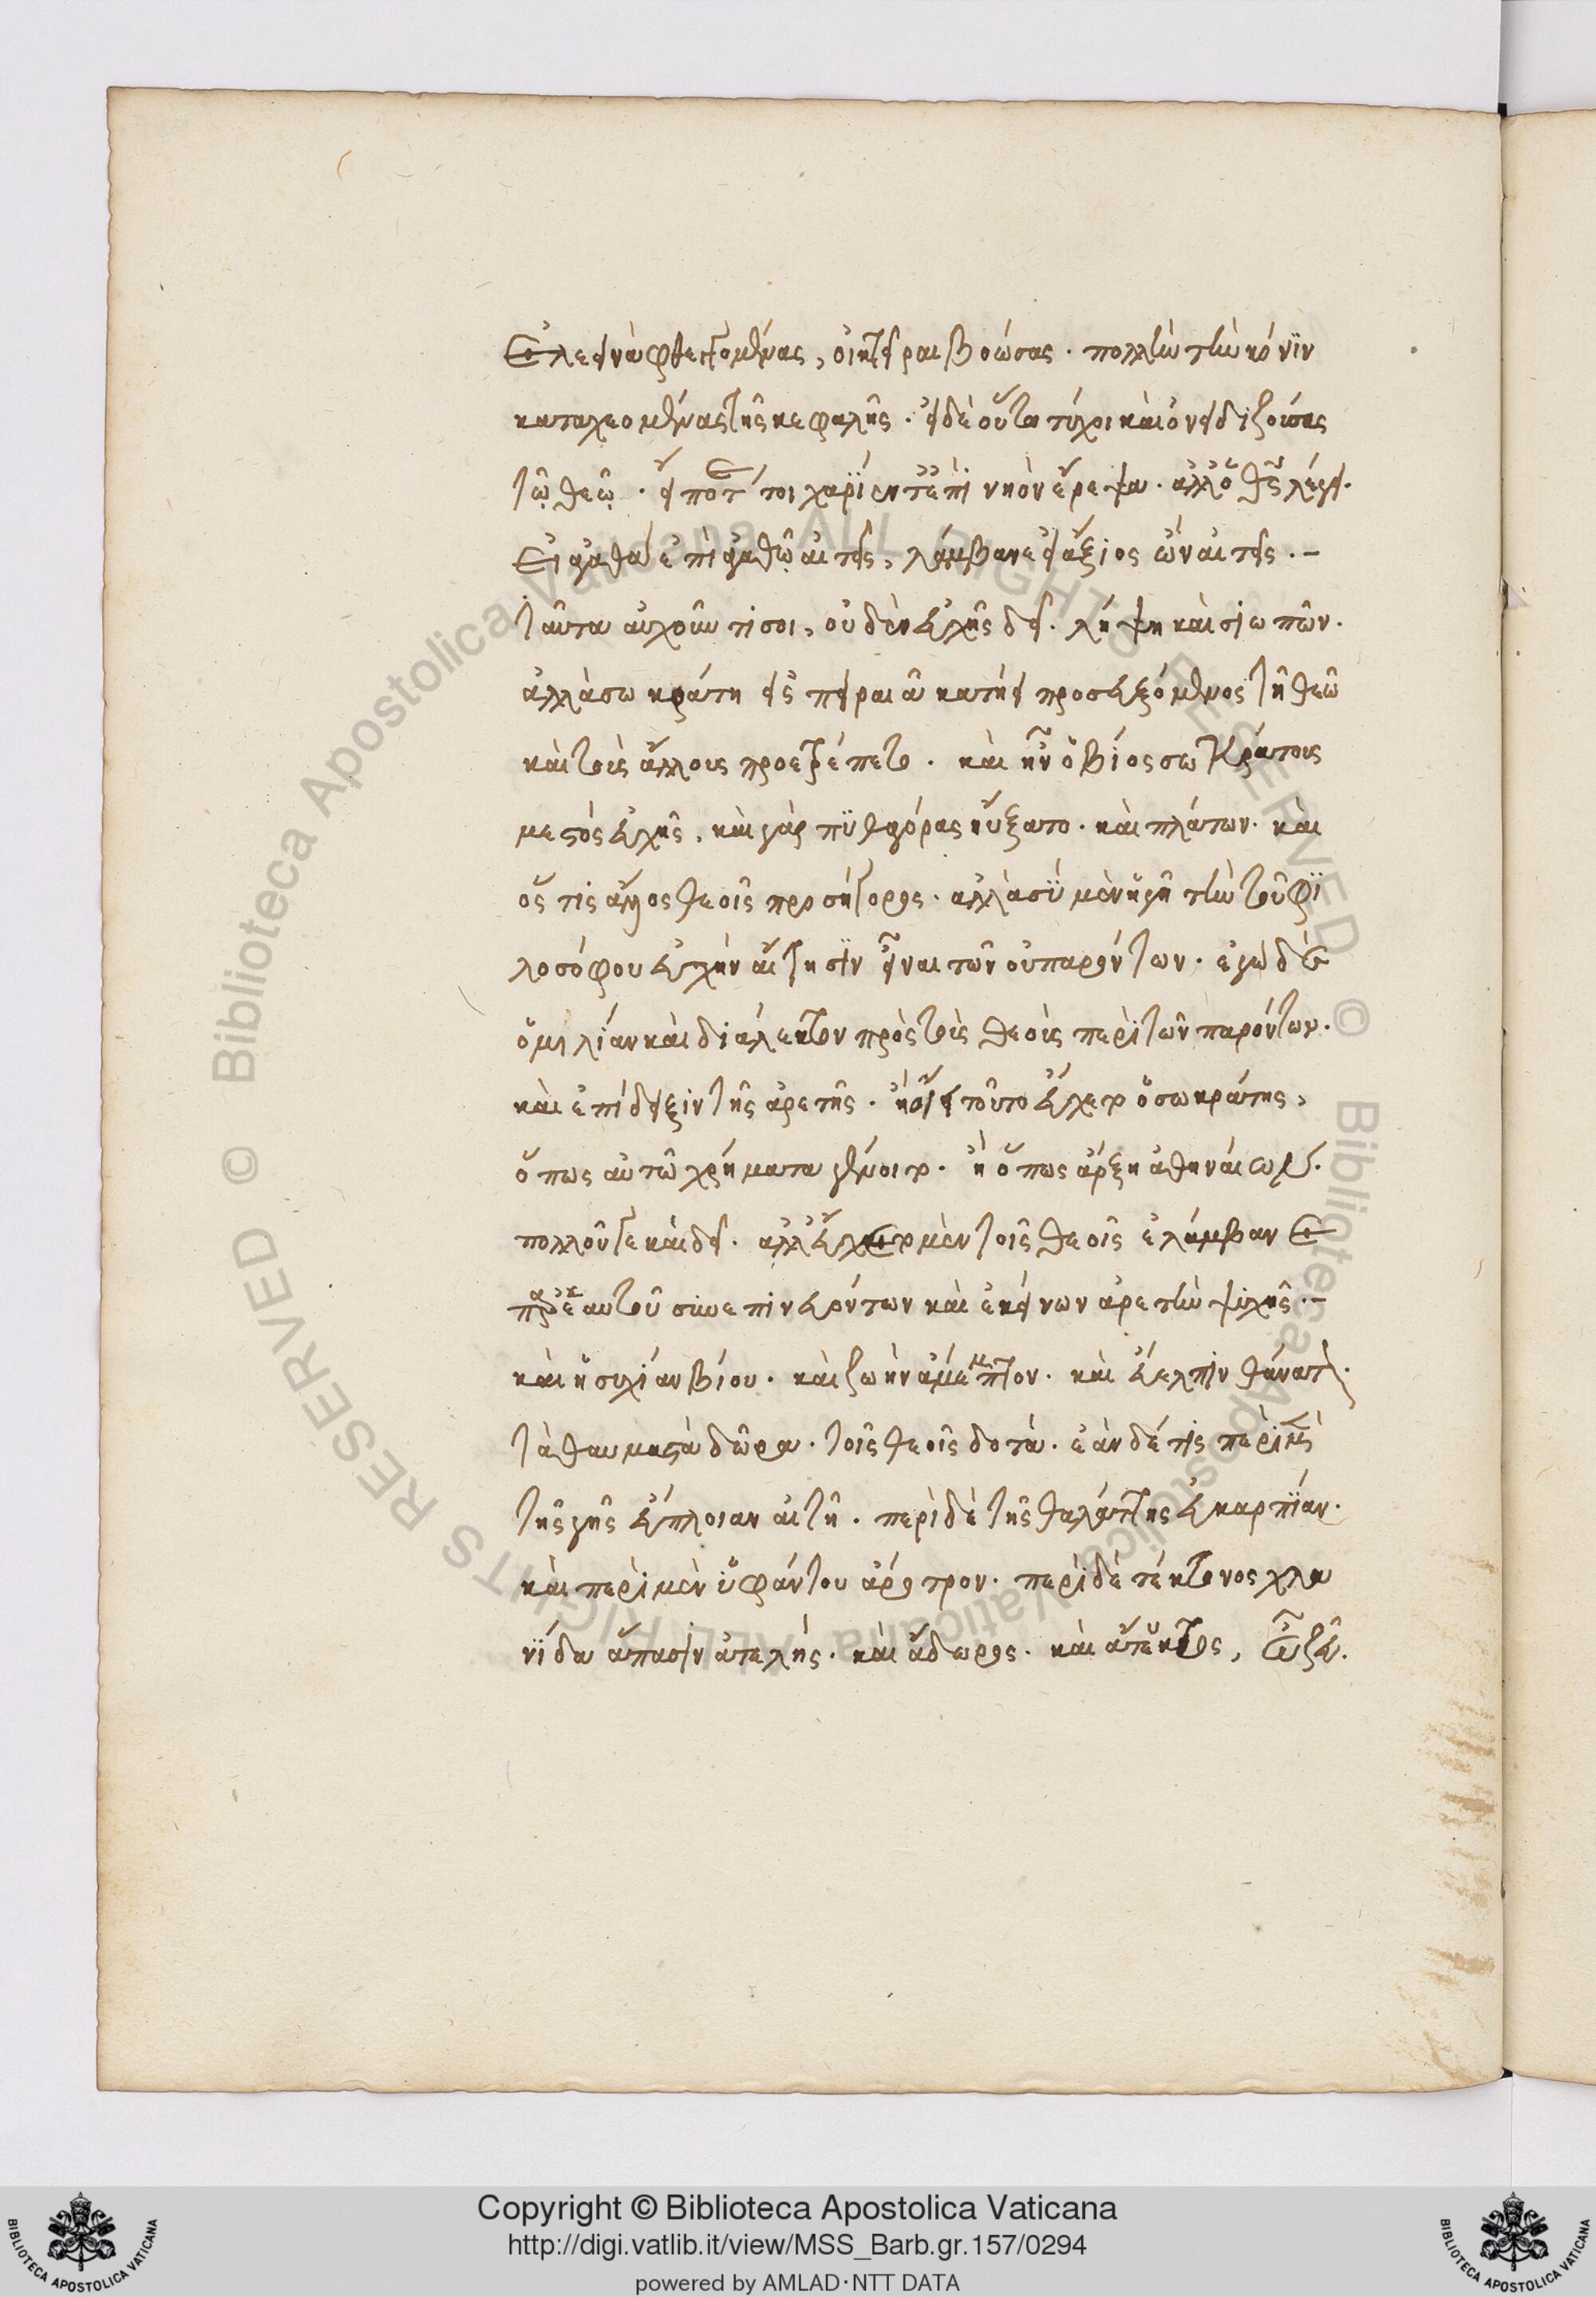 ἐλεεινὰ φθεγγομένας, οἰκτεῖραι βοώσας. πολλὴν τὴν κόνϊν
καταχεομένας τῆς κεφαλῆς. εἰ δὲ οὕτω τύχοι καὶ ὀνειδιζούσας
τῷ θεῷ. εἴ ποτέ τοι χαρΐεντ' ἐπὶ νηὸν ἔρεψα. ἀλλ' ὁ θεὸς λέγει.
Εἰ ἀγαθὰ ἐπὶ ἀγαθῷ αἰτεῖς, λάμβανε εἰ ἄξιος ὢν αἰτεῖς.–
ταῦτα αὐχοῦντι σοι, οὐδὲν εὐχῆς δεῖ. λήψη καὶ σιωπῶν.
ἀλλὰ σωκράτη εἰς πειραιᾶ κατήει προσευξόμενος τῇ θεῶ
καὶ τοὺς ἄλλους προετρέπετο. καὶ ἦν ὁ βίος σωκράτους
μεστὸς εὐχῆς. καὶ γὰρ πϋθαγόρας ηὔξατο. καὶ πλάτων. καὶ
ὅς τις ἄλλος θεοῖς προσήγορος. ἀλλὰ σὺ μὲν ἡγῇ τὴν τοῦ φϊ
λοσόφου εὐχὴν αἴτησϊν εἶναι τῶν οὐ παρόντων. ἐγὼ δὲ
ὁμιλίαν καὶ διάλεκτον πρὸς τοὺς θεοὺς περὶ τῶν παρόντων.
καὶ ἐπίδειξιν τῆς ἀρετῆς. ἢ οἴει τοῦτο εὔχετο ὁ σωκράτης,
ὅπως αὐτῶ χρήματα γένοιτο. ἢ ὅπως ἄρξη ἀθηναίων.
πολλοῦ γε καὶ δεῖ. ἀλλ' εὔχετο μὲν τοῖς θεοῖς ἐλάμβανε
παρ' ἑαυτοῦ συνεπινευόντων καὶ ἐκείνων ἀρετὴν ψυχῆς.–
καὶ ἡσυχίαν βίου. καὶ ζωὴν ἄμεμπτον. καὶ εὔελπιν θάνατον.
τὰ θαυμαστὰ δῶρα. τοῖς θεοῖς δοτά. ἐὰν δέ τις περὶ μὲν
τῆς γῆς εὔπλοιαν αἰτῆ. περὶ δὲ τῆς θαλάττης εὐκαρπίαν.
καὶ περὶ μὲν ὑφάντου ἄροτρον. περὶ δὲ τέκτονος χλα
νίδα ἄπασιν ἀτελής. καὶ ἄδωρος. καὶ ἄτευκτος, ὦ ζεῦ.
Copyright © Biblioteca Apostolica Vaticana
http://digi.vatlib.it/view/MSS_Barb.gr.157/0294
powered by AMLAD·NTT DATA